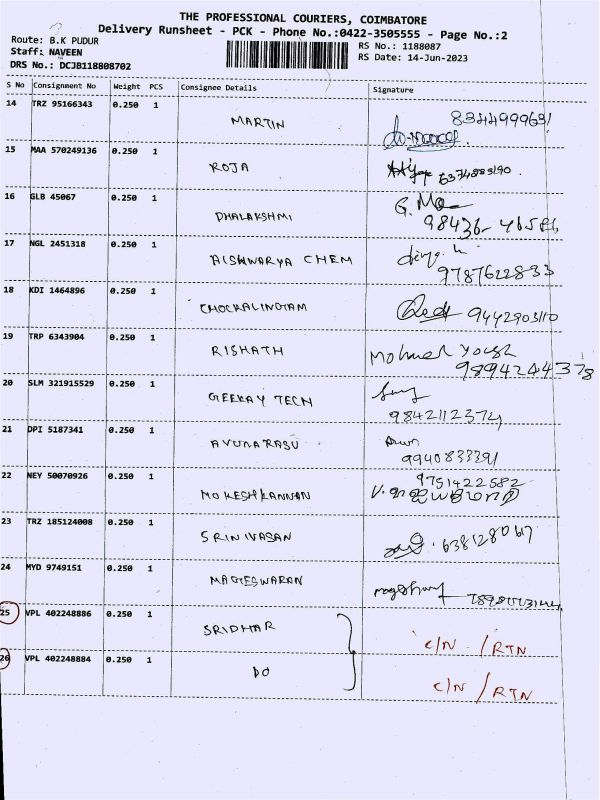 THE PROFESSIONAL COURIERS, COIMBATORE
Delivery Runsheet - PCK - Phone No.:0422-3505555 - Page No.:2
Route: B.K PUDUR
Staff: NAVEEN
DRS No.: DCJB118808702
RS No.: 1188087
RS Date: 14-Jun-2023
S No Consignment No Weight PCS Consignee Details Signature
14 TRZ 95166343 0.250 1 MARTIN 8344999631
15 MAA 570249136 0.250 1 ROJA
16 GLB 45067 0.250 1 DHALAKSHMI G.
17 NGL 2451318 0.250 1 AISHWARYA CHEM 9787622833
18 KDI 1464896 0.250 1 CHOCKALINGAM 9442903110
19 TRP 6343904 0.250 1 RISHATH 9894244378
20 SLM 321915529 0.250 1 GEEKAY TECH 9842112374
21 DPI 5187341 0.250 1 AVUNARASU 9940833391
22 NEY 50070926 0.250 1 MOKESHKANNAN 9751422582
23 TRZ 185124008 0.250 1 SRINIVASAN 6381280617
24 MYD 9749151 0.250 1 MAGESWARAN
25 VPL 402248886 0.250 1 SRIDHAR C/N / RTN
26 VPL 402248884 0.250 1 DO C/N / RTN